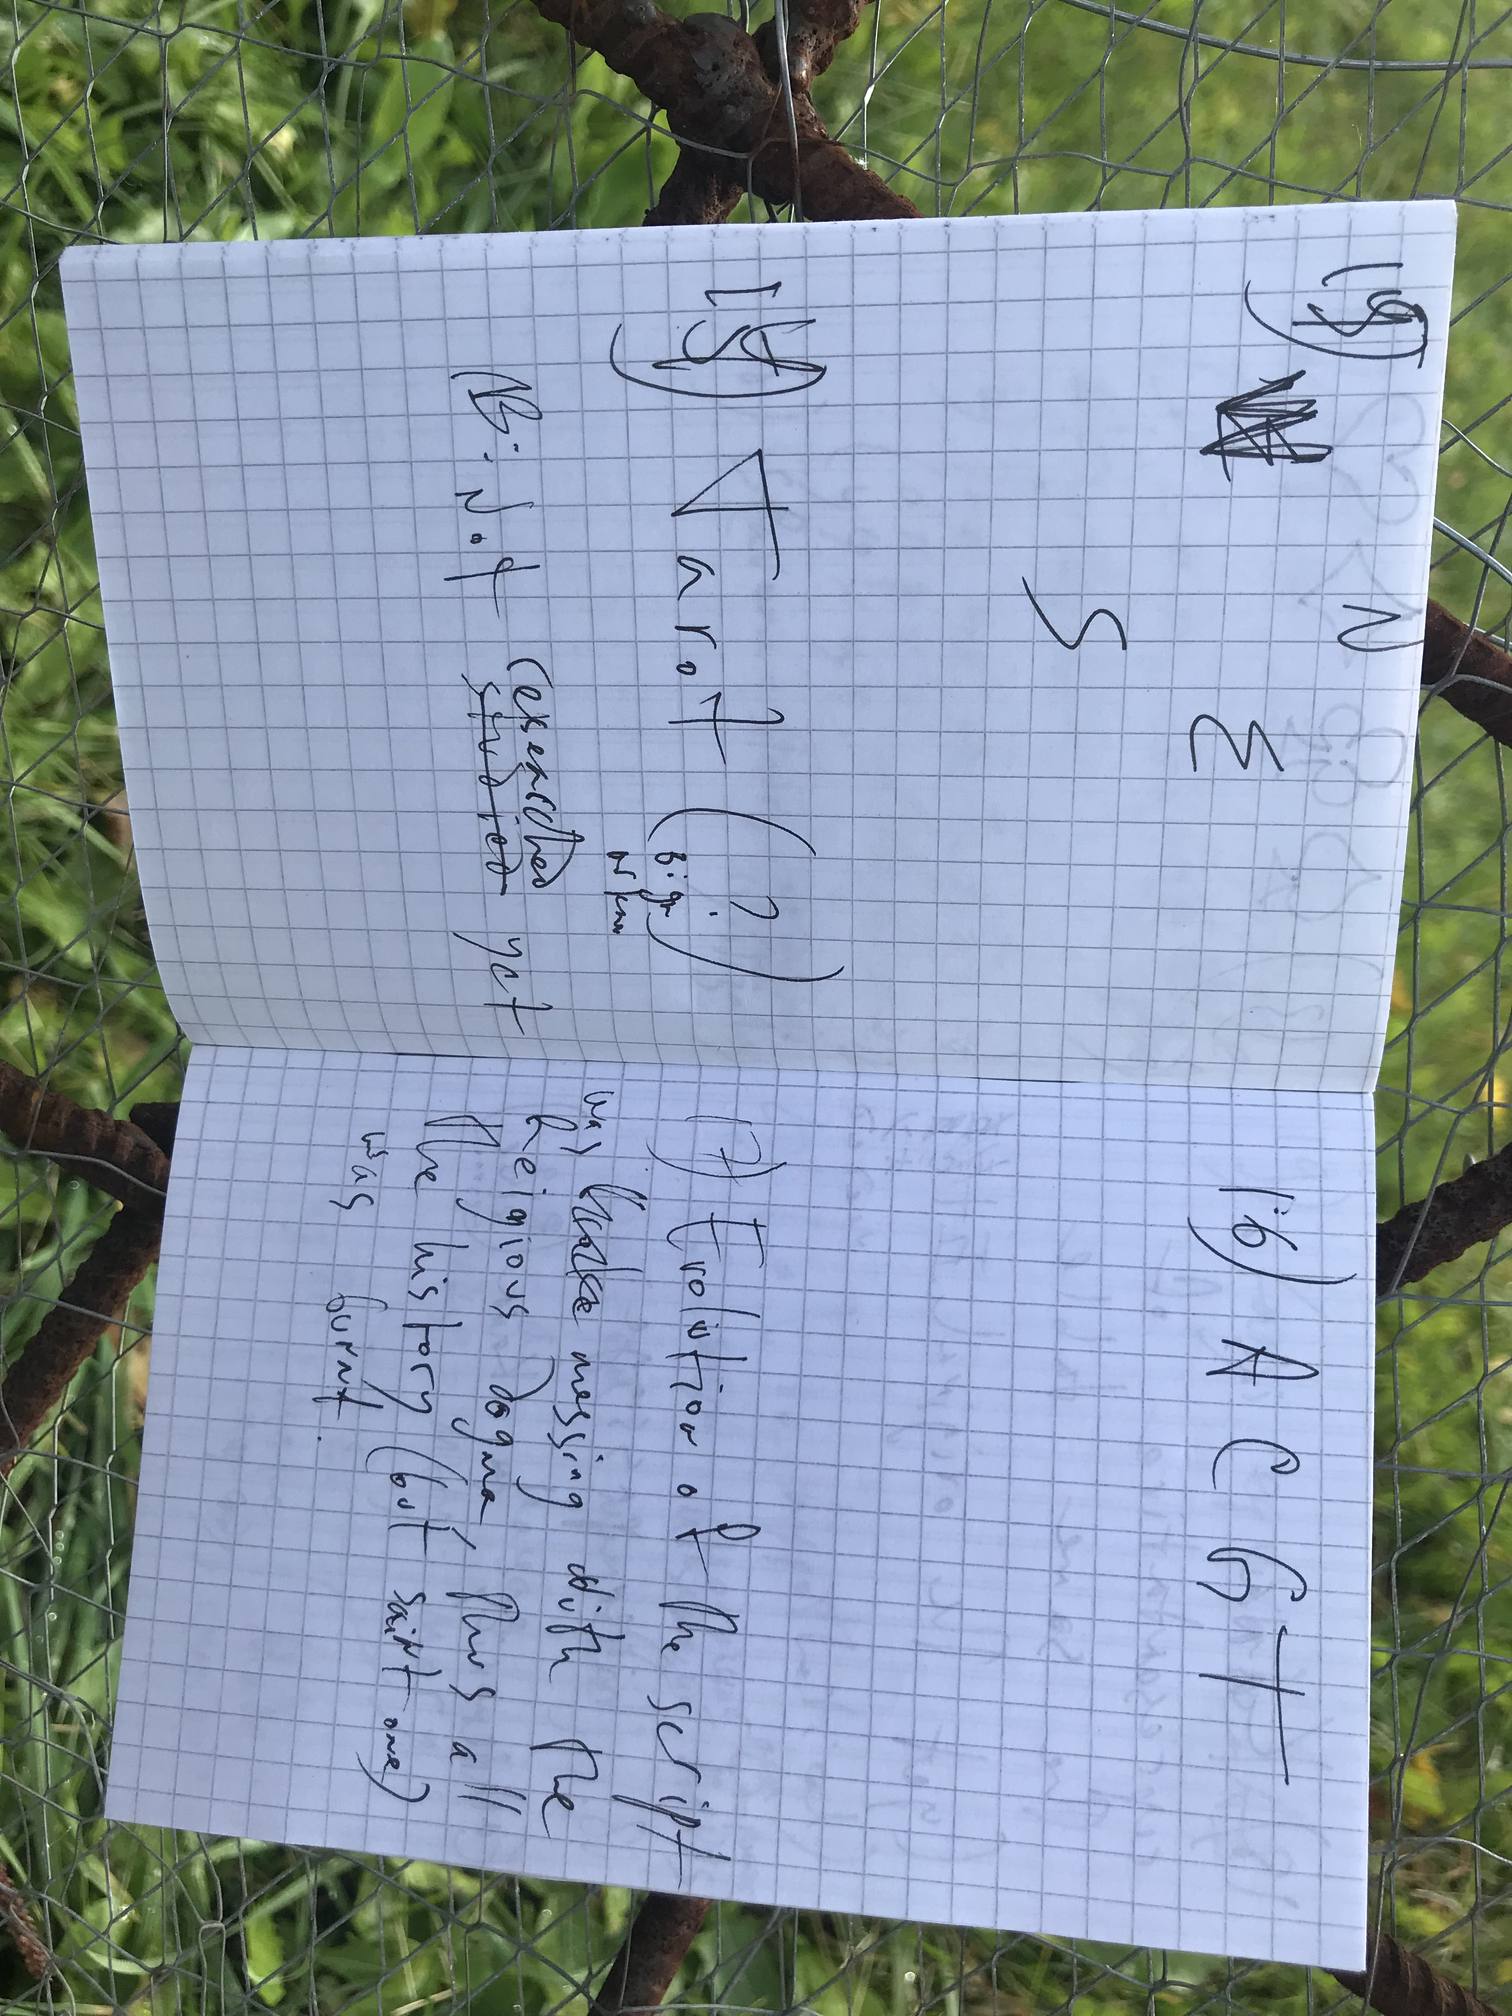 N
E
S
Tarot (?)
big
NB: Not (exercised
studied yet
16) A C G T
17) Evolution of the script
was messing with the
Religious dogma, thus all
the history (but saint one)
was burnt.